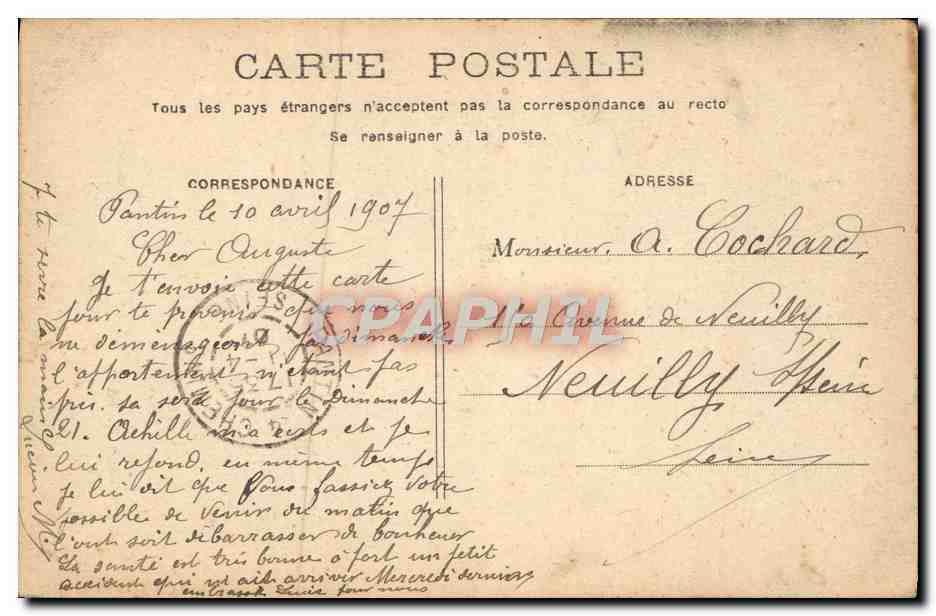 CARTE POSTALE
Tous les pays étrangers n'acceptent pas la correspondance au recto
Se renseigner à la poste.
CORRESPONDANCE
Pantin le 10 avril 1907
Cher Auguste
Je t'envoie cette carte
pour te prévenir que nous
ne demenageons pas dimanche
l'appartement n'étant pas
pris. sa sera pour le dimanche
21. Achille m'a ecris et je
lui repond, en même temps
je lui dit que vous fassiez votre
possible de venir du matin que
l'ont soit débarrasser de bonheur
La santé est très bonne a fort un petit
accident qui est arriver Mercredi derniers
embrasse pour nous
Je te serre la main
ADRESSE
Monsieur. A. Cochard
Avenue de Neuilly
Neuilly s/Seine
Seine
PANTIN
SEINE
CPAPHIL.COM